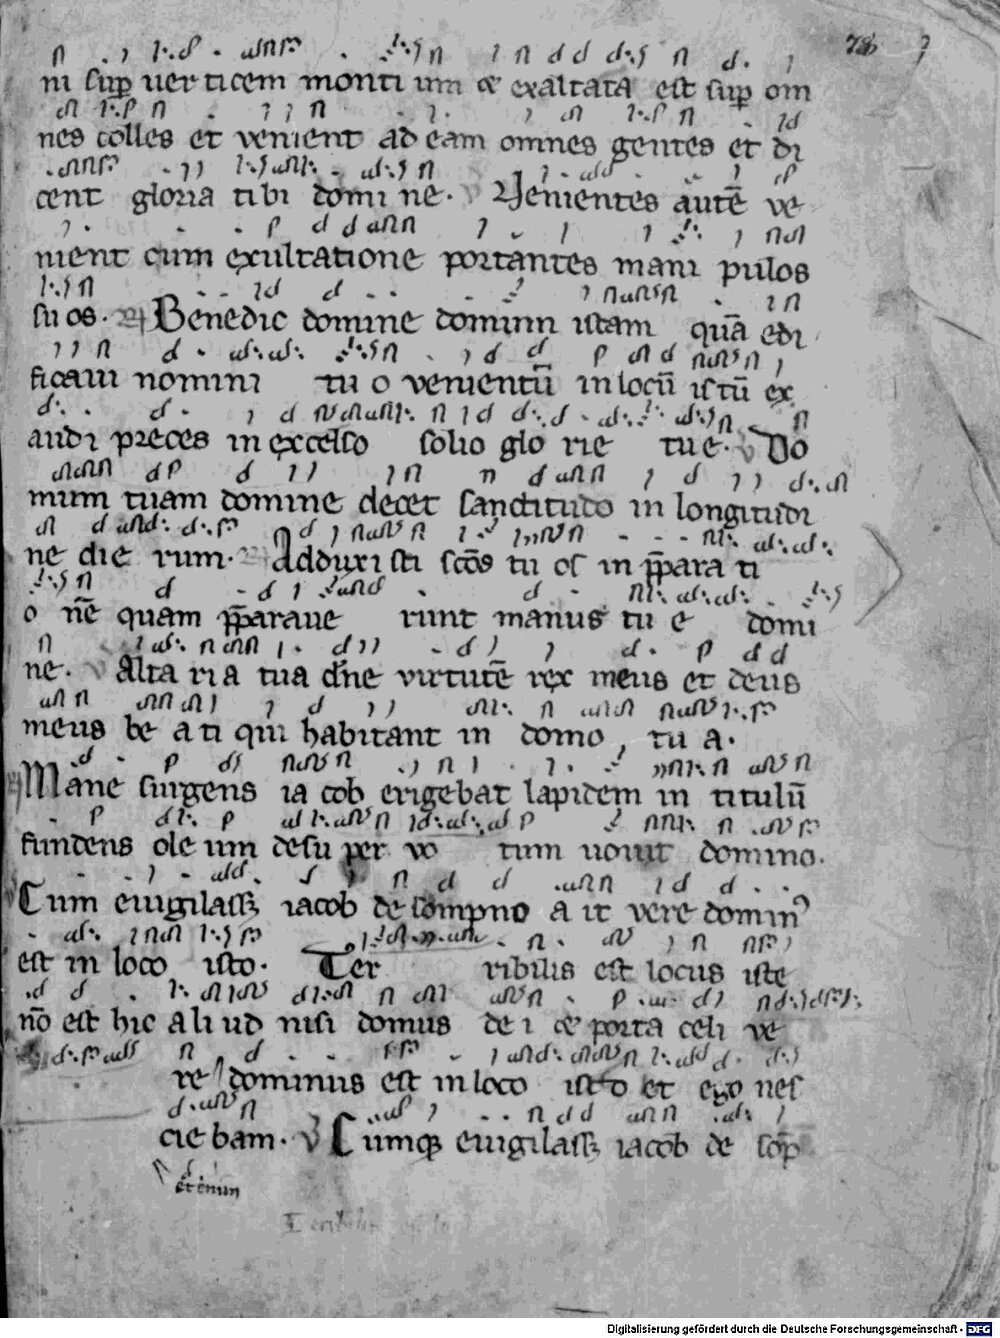 78
ni sup uerticem monti um & exaltata est sup om
nes colles et venient ad eam omnes gentes et di
cent gloria tibi domi ne. V Venientes autē ve
nient cum exultatione portantes mani pulos
su os. Benedic domine domum istam quā edi
ficaui nomini tu o venientū in locū istū ex
audi preces in excelso solio glo rie tu e. V Do
mum tuam domine decet sanctitudo in longitudi
ne die rum. Adduxi sti scōs tu os in p̄para ti
o nē quam p̄paraue runt manus tu e domi
ne. V Alta ri a tua dn̄e virtutē rex meus et deus
meus be a ti qui habitant in domo, tu a.
Mane surgens ia cob erigebat lapidem in titulū
fundens ole um desu per vo tum uouit domino.
Cum euigilassꝫ iacob de sompno a it vere domin⁹
est in loco isto. Ter ribilis est locus iste
nō est hic ali ud nisi domus de i & porta celi ve
re dominus est in loco isto et ego nes
cie bam. V Cumqꝫ euigilassꝫ iacob de sōp
etenim
Digitalisierung gefördert durch die Deutsche Forschungsgemeinschaft - DFG